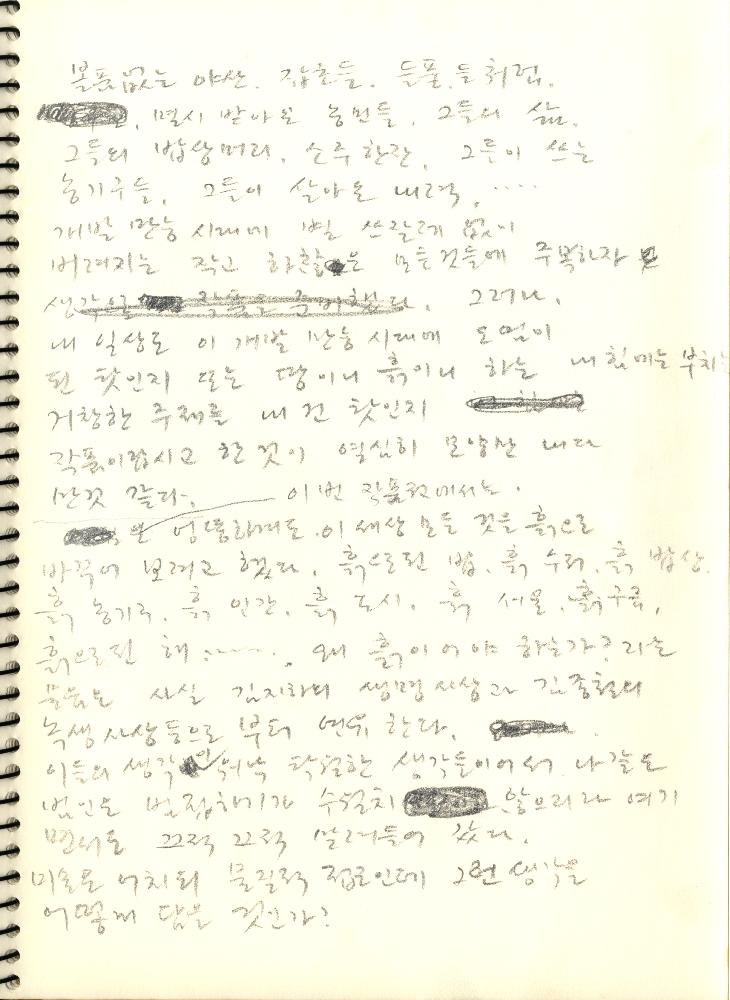 볼품없는 야산. 잡초들. 들풀.들처럼.
멸시 받아온 농민들. 그들의 삶.
그들의 밥상머리. 소주한잔. 그들이 쓰는
농기구들. 그들이 살아온 내력. ....
개발 만능 시대에 별 쓰잘데 없이
버려지는 작고 하찮은 모든것들에 주목하자
생각으로 그러나.
내 일상도 이 개발 만능 시대에 오염이
된 탓인지 또는 땅이니 흙이니 하는 내 힘에는 부치는
거창한 주제를 내 건 탓인지
작품이랍시고 한 것이 열심히 모양만 내다
만것 같다. 이번 작품전에서는.
엉뚱하게도.이 세상 모든 것을 흙으로
바꾸어 보려고 했다. 흙으로된 밥. 흙 수저. 흙 밥상.
흙 농기구. 흙 인간. 흙 도시. 흙 서울. 흙구름.
흙으로된 해...... 왜 흙이어야 하는가? 라는
물음은 사실 김지하의 생명사상과 김종철의
녹색사상등으로 부터 연유 한다.
이들의 생각이 워낙 탁월한 생각들이어서 나같은
범인은 범접하기가 수월치 않으리라 여기
면서도 끄적 끄적 살려들어 갔다.
미술은 어차피 물질적 접근인데 그런 생각을
어떻게 담을 것인가?